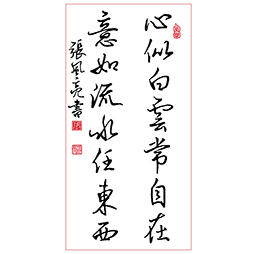 心似白雲常自在
意如流水任東西
張風亮書